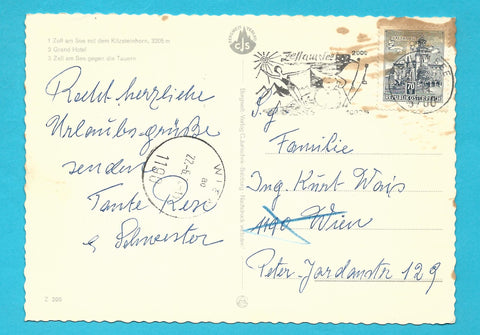 1 Zell am See mit dem Kitzsteinhorn, 3205 m
2 Grand Hotel
3 Zell am See gegen die Tauern
Recht herzliche
Urlaubsgrüße
senden
Tante Resi
Schwester
WIEN
22.-8.
1190
CJS
Zell am See
REPUBLIK ÖSTERREICH
70
Familie
Ing. Kurt Wais
1190 Wien
Peter-Jordanstr 129
Z 205